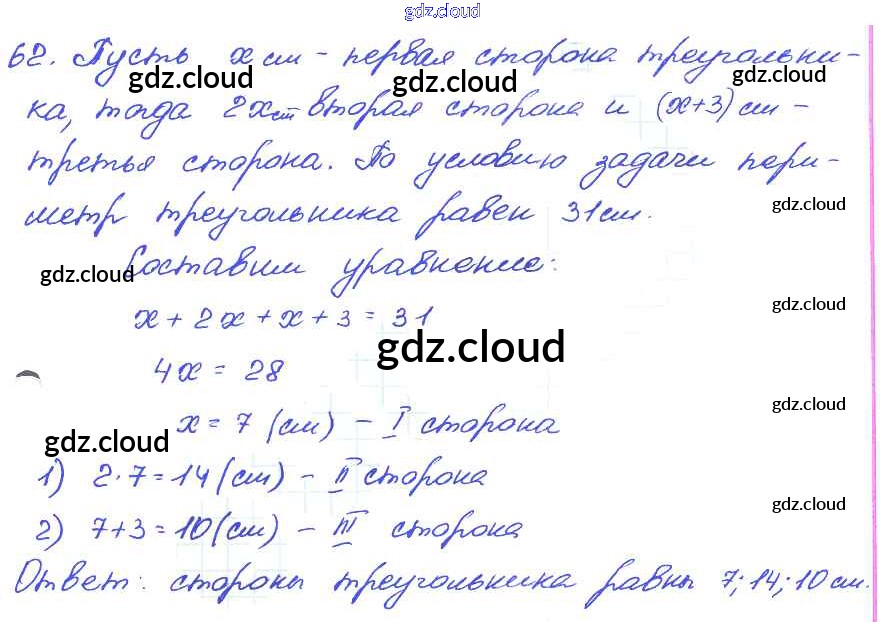 gdz.cloud
62. Пусть x см - первая сторона треугольни-
gdz.cloud gdz.cloud gdz.cloud
ка, тогда 2x см вторая сторона и (x+3) см -
третья сторона. По условию задачи пери-
метр треугольника равен 31 см.
gdz.cloud
Составим уравнение:
gdz.cloud
gdz.cloud
x + 2x + x + 3 = 31
gdz.cloud
4x = 28
x = 7 (см) - I сторона
gdz.cloud
gdz.cloud
1) 2·7=14 (см) - II сторона
gdz.cloud
2) 7+3=10 (см) - III сторона
Ответ: стороны треугольника равны 7; 14; 10 см.